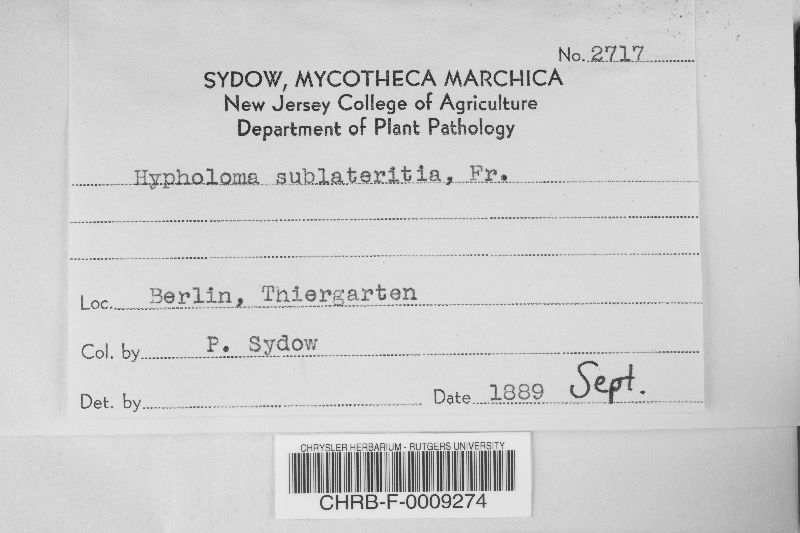 No. 2717
SYDOW, MYCOTHECA MARCHICA
New Jersey College of Agriculture
Department of Plant Pathology
Hypholoma sublateritia, Fr.
Loc. Berlin, Thiergarten
Col. by P. Sydow
Det. by
Date 1889 Sept.
CHRYSLER HERBARIUM - RUTGERS UNIVERSITY
CHRB-F-0009274